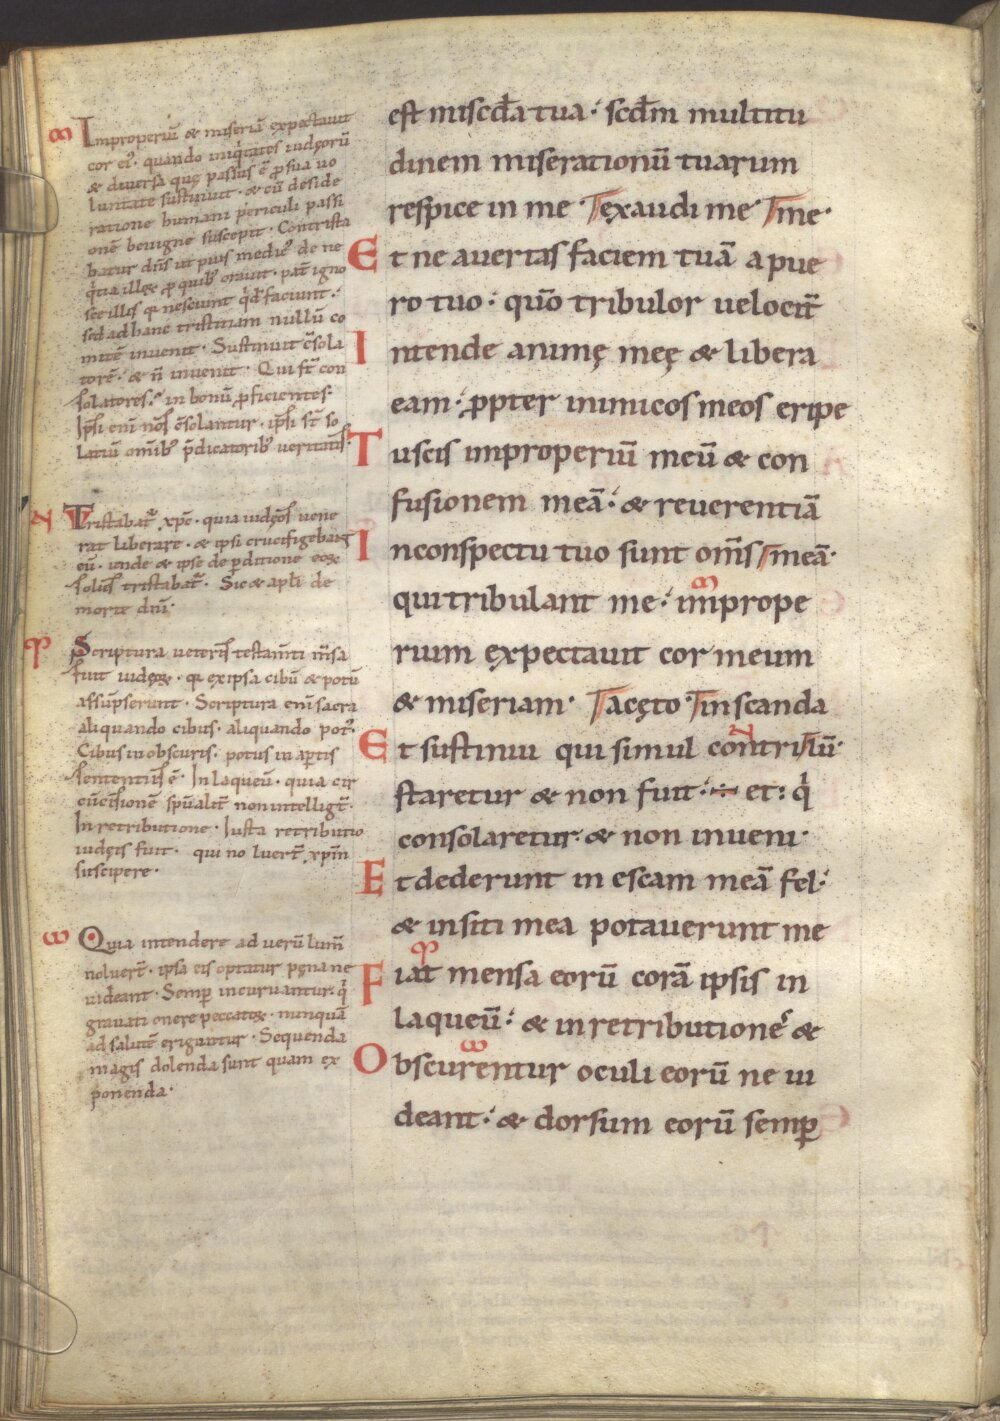 Improperiū & miseriā expectauit
cor ei᾽. quando iniq̇tates iudęorū
& diuersa quę passus ē ꝓ sua uo
luntate sustinuit. & cū deside
ratione humani periculi passi
onē benigne suscepit. Contrista
batur dn̄s ut pius medic᾽ de ne
q̇tia illoꝝ ꝓ quib᾽ orauit. pat̄ igno
sce illis q̄ nesciunt q̇d faciunt.
sed ad hanc tristitiam nullū co
mitē inuenit. Sustinuit c̄sola
torē. & n̄ inuenit. Qui st̄ con
solatores? in bonū ꝓficientes.
Ipsi enī nos c̄solantur. ipsi st̄ so
latiū omīb᾽ p̄dicatorib᾽ ueritatis.
Tristabat᾽ xp̄c. quia iudęos uene
rat liberare. & ipsi crucifigebant
eū. unde & ipse de ꝑditione eoꝝ
solus tristabat᾽. Sic & apl̄i de
morte dn̄i.
Scriptura ueteris testam̄ti m̄sa
fuit iudęoꝝ. q̄ ex ipsa cibū & potū
assūpserunt. Scriptura eni sacra
aliquando cibus. aliquando pot᾽.
Cibus in obscuris. potus in aꝑtis
sententiis ē. In laqueū. quia cir
cūcisionē spūalit̄ non intelligt̄.
In retributione. Iusta retributio
iudęis fuit. qui no luert̄ xp̄m
suscipere.
Quia intendere ad uerū lum̄
noluert̄. ipsa eis optatur pęna ne
uideant. Semꝑ incuruantur. q̇
grauati onere peccatoꝝ. nunquā
ad salutē eriguntur. Sequenda
magis dolenda sunt quam ex
ponenda.
est misc̄da tua. sc̄dm multitu
dinem miserationū tuarum
respice in me. exaudi me me
Et ne auertas faciem tuā a pue
ro tuo. qūo tribulor uelocit̄
Intende animę meę & libera
eam. ꝓpter inimicos meos eripe
Tu scis improperiū meū & con
fusionem meā. & reuerentiā
In conspectu tuo sunt om̄s meā.
qui tribulant me. imprope
rium expectauit cor meum
& miseriam. acęto in scanda
Et sustinui qui simul contri lū.
staretur & non fuit. et: q̇
consolaretur. & non inueni.
Et dederunt in escam meā fel.
& in siti mea potauerunt me
Fiat mensa eorū corā ipsis in
laqueū. & in retributione᾽ &
Obscurentur oculi eorū ne ui
deant. & dorsum eorū semꝑ